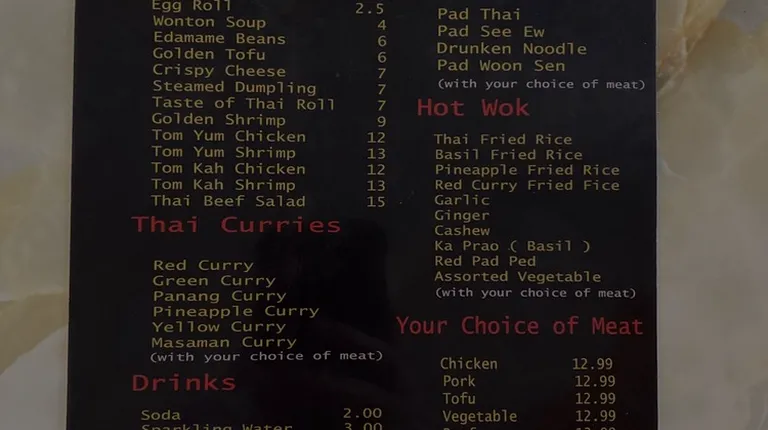 Egg Roll 2.5
Wonton Soup 4
Edamame Beans 6
Golden Tofu 6
Crispy Cheese 7
Steamed Dumpling 7
Taste of Thai Roll 7
Golden Shrimp 9
Tom Yum Chicken 12
Tom Yum Shrimp 13
Tom Kah Chicken 12
Tom Kah Shrimp 13
Thai Beef Salad 15
Thai Curries
Red Curry
Green Curry
Panang Curry
Pineapple Curry
Yellow Curry
Masaman Curry
(with your choice of meat)
Drinks
Soda 2.00
Sparkling Water 3.00
Pad Thai
Pad See Ew
Drunken Noodle
Pad Woon Sen
(with your choice of meat)
Hot Wok
Thai Fried Rice
Basil Fried Rice
Pineapple Fried Rice
Red Curry Fried Fice
Garlic
Ginger
Cashew
Ka Prao ( Basil )
Red Pad Ped
Assorted Vegetable
(with your choice of meat)
Your Choice of Meat
Chicken 12.99
Pork 12.99
Tofu 12.99
Vegetable 12.99